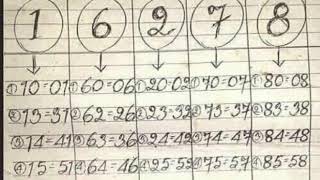 1 6 2 7 8
①10=01 ①60=06 ①20=02 ①70=07 ①80=08
②13=31 ②62=26 ②23=32 ②73=37 ②83=38
③14=41 ③63=36 ③24=42 ③74=47 ③84=48
④15=51 ④64=46 ④25=52 ④75=57 ④85=58